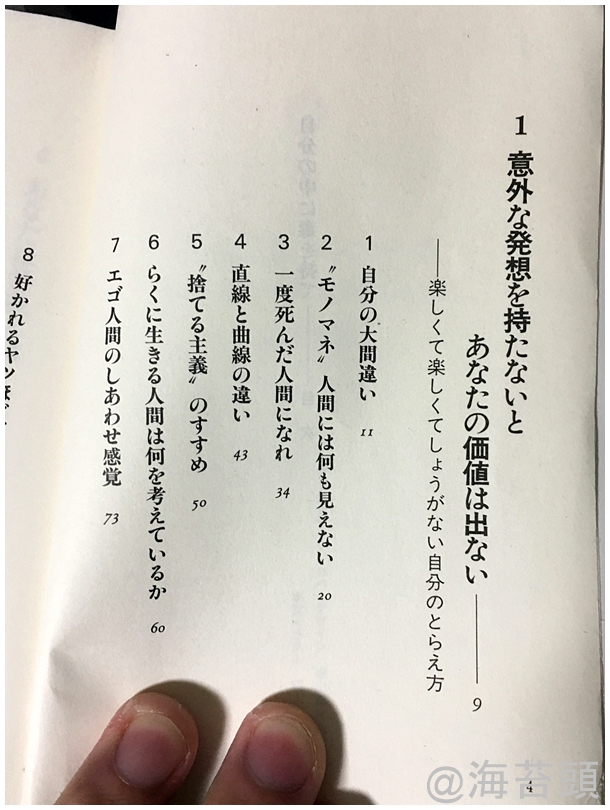 1 意外な発想を持たないと
あなたの価値は出ない——9
——楽しくて楽しくてしょうがない自分のとらえ方
1 自分の大間違い 11
2 〝モノマネ〟人間には何も見えない 20
3 一度死んだ人間になれ 34
4 直線と曲線の違い 43
5 〝捨てる主義〟のすすめ 50
6 らくに生きる人間は何を考えているか 60
7 エゴ人間のしあわせ感覚 73
8 好かれるヤツほど
4
@海苔頭